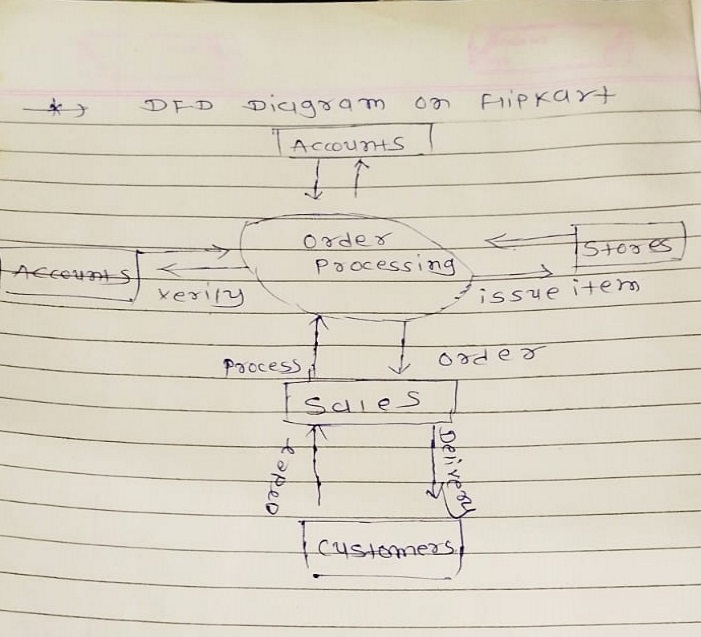 DFD Diagram on Flipkart
Accounts
Order
Processing
Stores
Accounts
Verify
issue item
Process
Order
Sales
Delivery
Customers